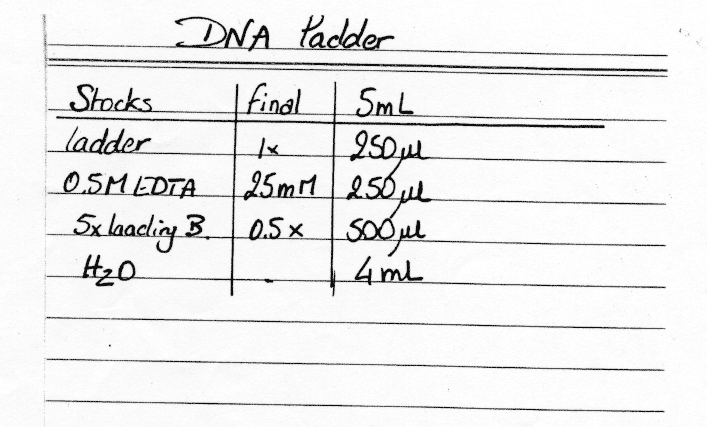 DNA Ladder
Stocks final 5mL
ladder 1x 250µl
0.5M EDTA 25mM 250µl
5x loading B. 0.5x 500µl
H2O - 4mL